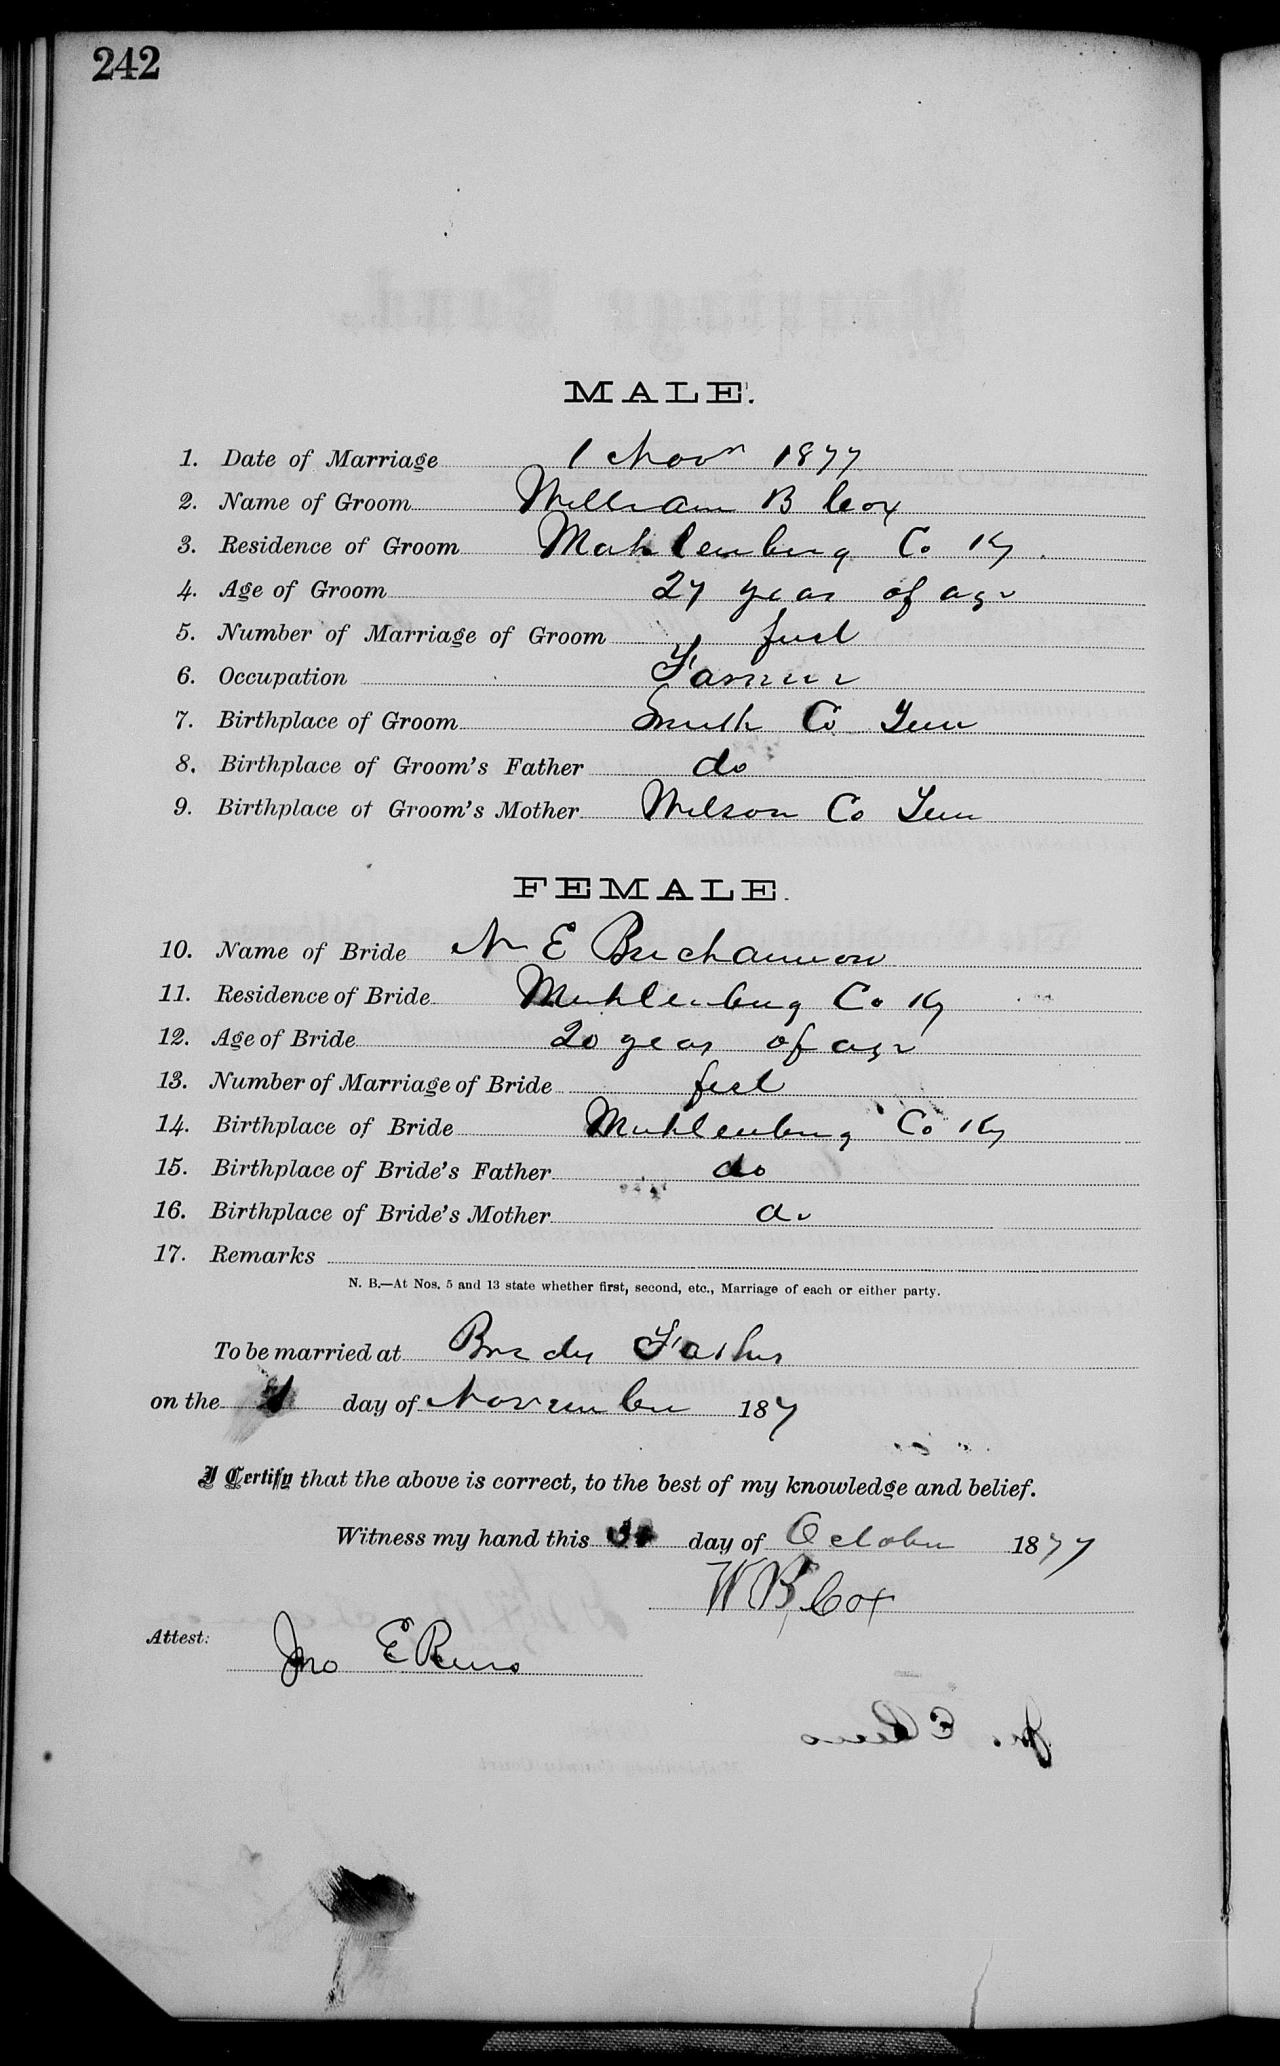 242
MALE.
1. Date of Marriage 1 Novr 1877
2. Name of Groom William B Cox
3. Residence of Groom Muhlenburg Co Ky.
4. Age of Groom 27 years of age
5. Number of Marriage of Groom first
6. Occupation Farmer
7. Birthplace of Groom Smith Co Tenn
8. Birthplace of Groom's Father do
9. Birthplace of Groom's Mother Wilson Co Tenn
FEMALE.
10. Name of Bride N E Buchannon
11. Residence of Bride Muhlenburg Co Ky
12. Age of Bride 20 years of age
13. Number of Marriage of Bride first
14. Birthplace of Bride Muhlenburg Co Ky
15. Birthplace of Bride's Father do
16. Birthplace of Bride's Mother do
17. Remarks
N. B.—At Nos. 5 and 13 state whether first, second, etc., Marriage of each or either party.
To be married at Brides Fathers
on the 1 day of November 187 7
I Certify that the above is correct, to the best of my knowledge and belief.
Witness my hand this day of October 1877
W B Cox
Attest: Jno E Reno